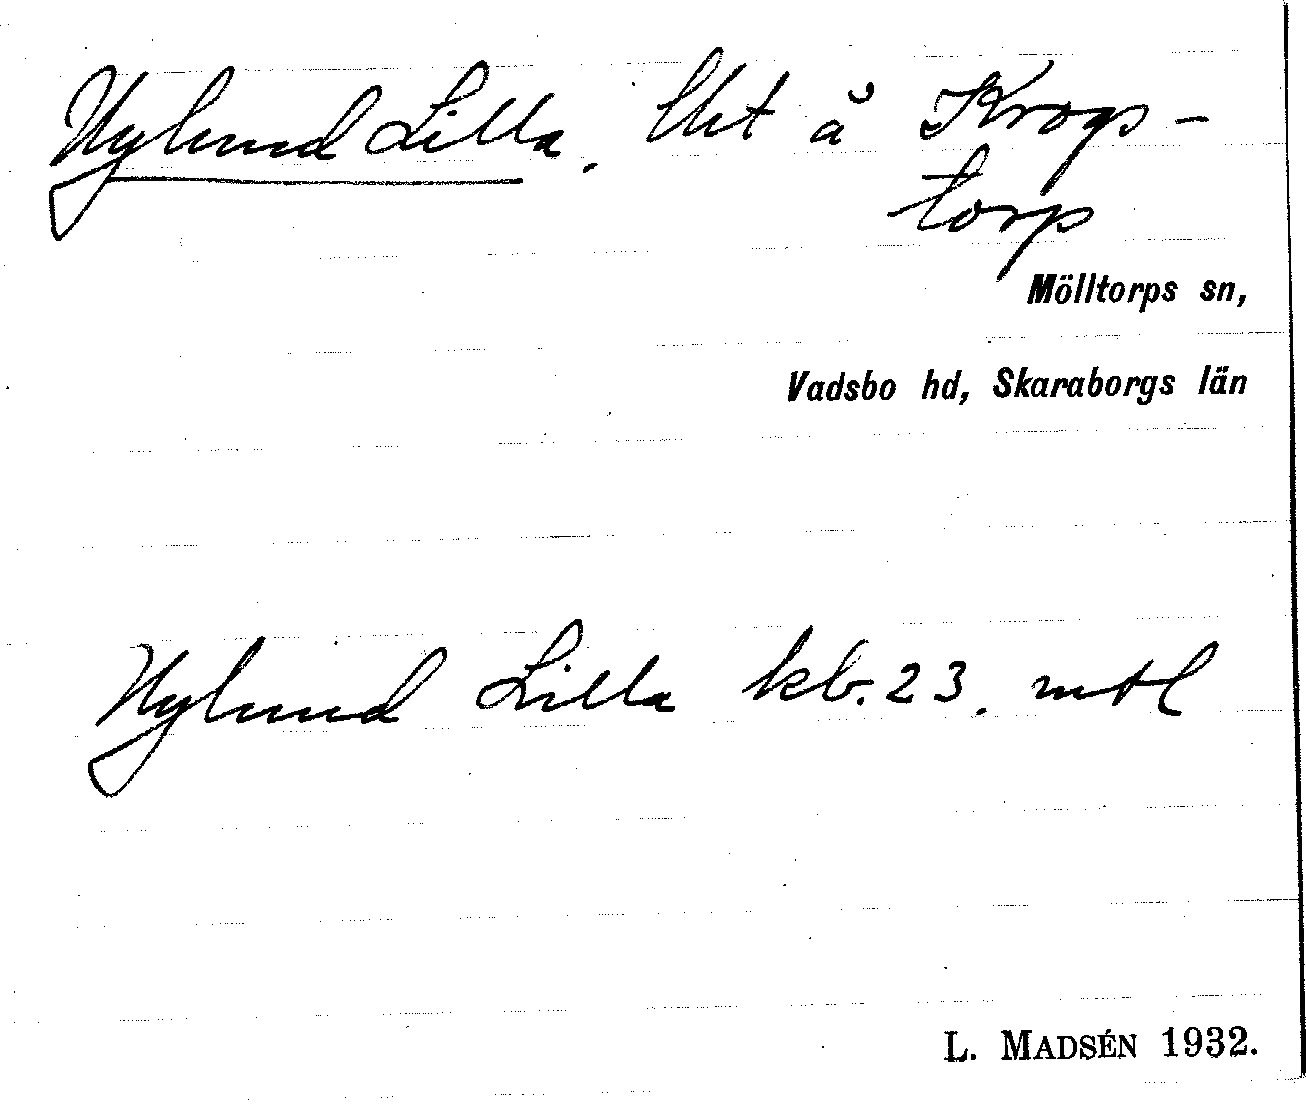 Nylund Lilla, lht å Krogs-
torp
Mölltorps sn,
Vadsbo hd, Skaraborgs län
Nylund Lilla kb. 23. mtl
L. MADSÉN 1932.